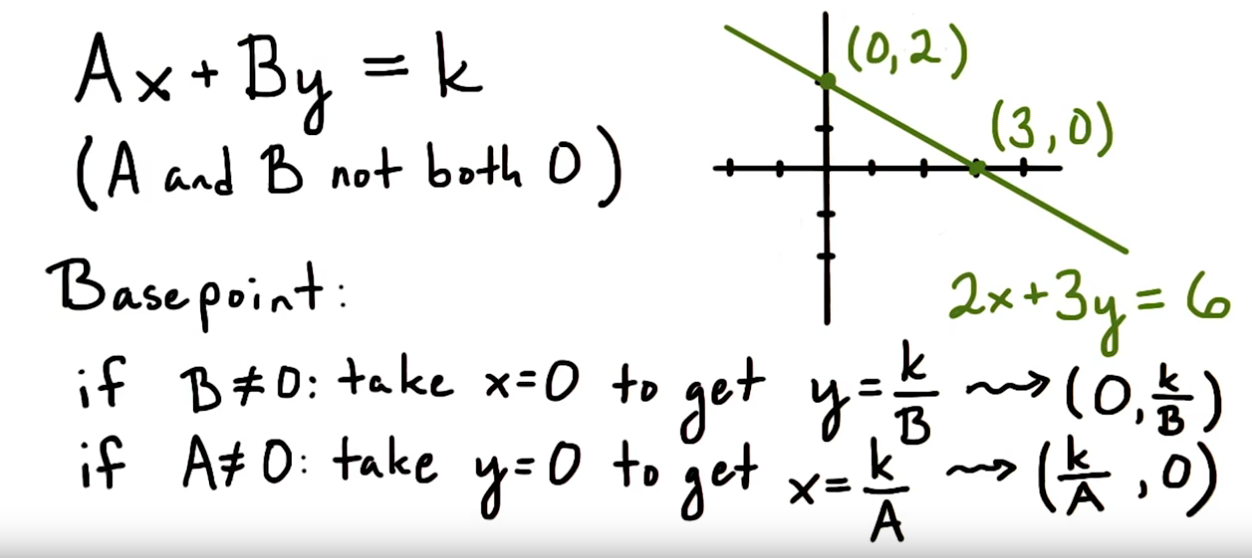 Ax + By = k
(A and B not both 0)
(0,2)
(3,0)
2x+3y=6
Basepoint:
if B≠0: take x=0 to get y=k/B ⇝ (0,k/B)
if A≠0: take y=0 to get x=k/A ⇝ (k/A,0)